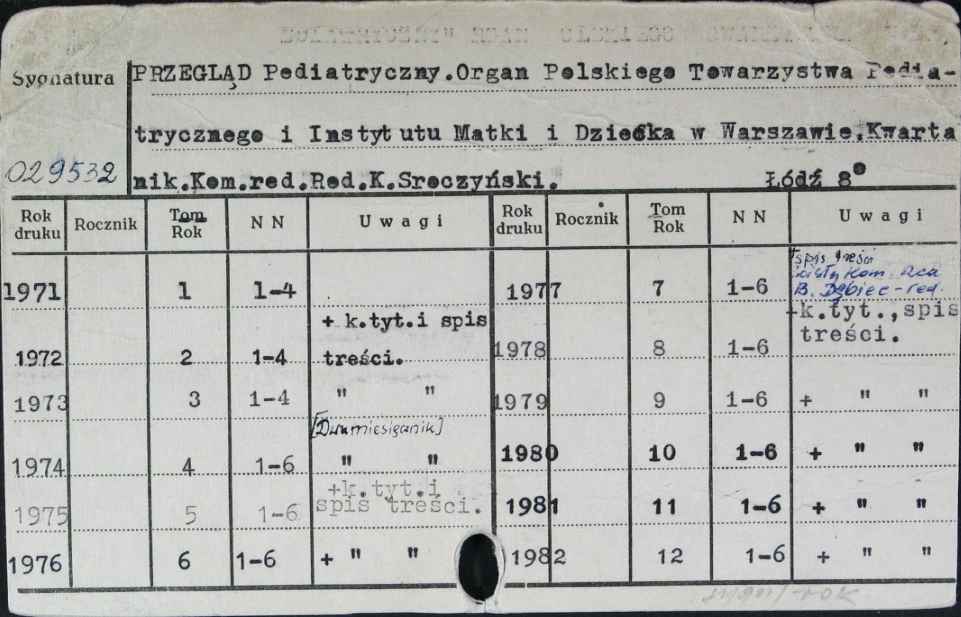 Sygnatura PRZEGLĄD Pediatryczny.Organ Polskiego Towarzystwa Pedia-
trycznego i Instytutu Matki i Dziecka w Warszawie.Kwarta
029532 nik.Kom.red.Red.K.Sroczyński. Łódź 8°
Rok druku Rocznik Tom Rok NN Uwagi Rok druku Rocznik Tom Rok NN Uwagi
+spis treści
B. Dębiec-red.
1971 1 1-4 1977 7 1-6
+ k.tyt.i spis +k.tyt.,spis
1972 2 1-4 treści. 1978 8 1-6 treści.
1973 3 1-4 " " 1979 9 1-6 + " "
[Dwumiesięcznik]
1974 4 1-6 " " 1980 10 1-6 + " "
+k.tyt.i
1975 5 1-6 spis treści. 1981 11 1-6 + " "
1976 6 1-6 + " " 1982 12 1-6 + " "